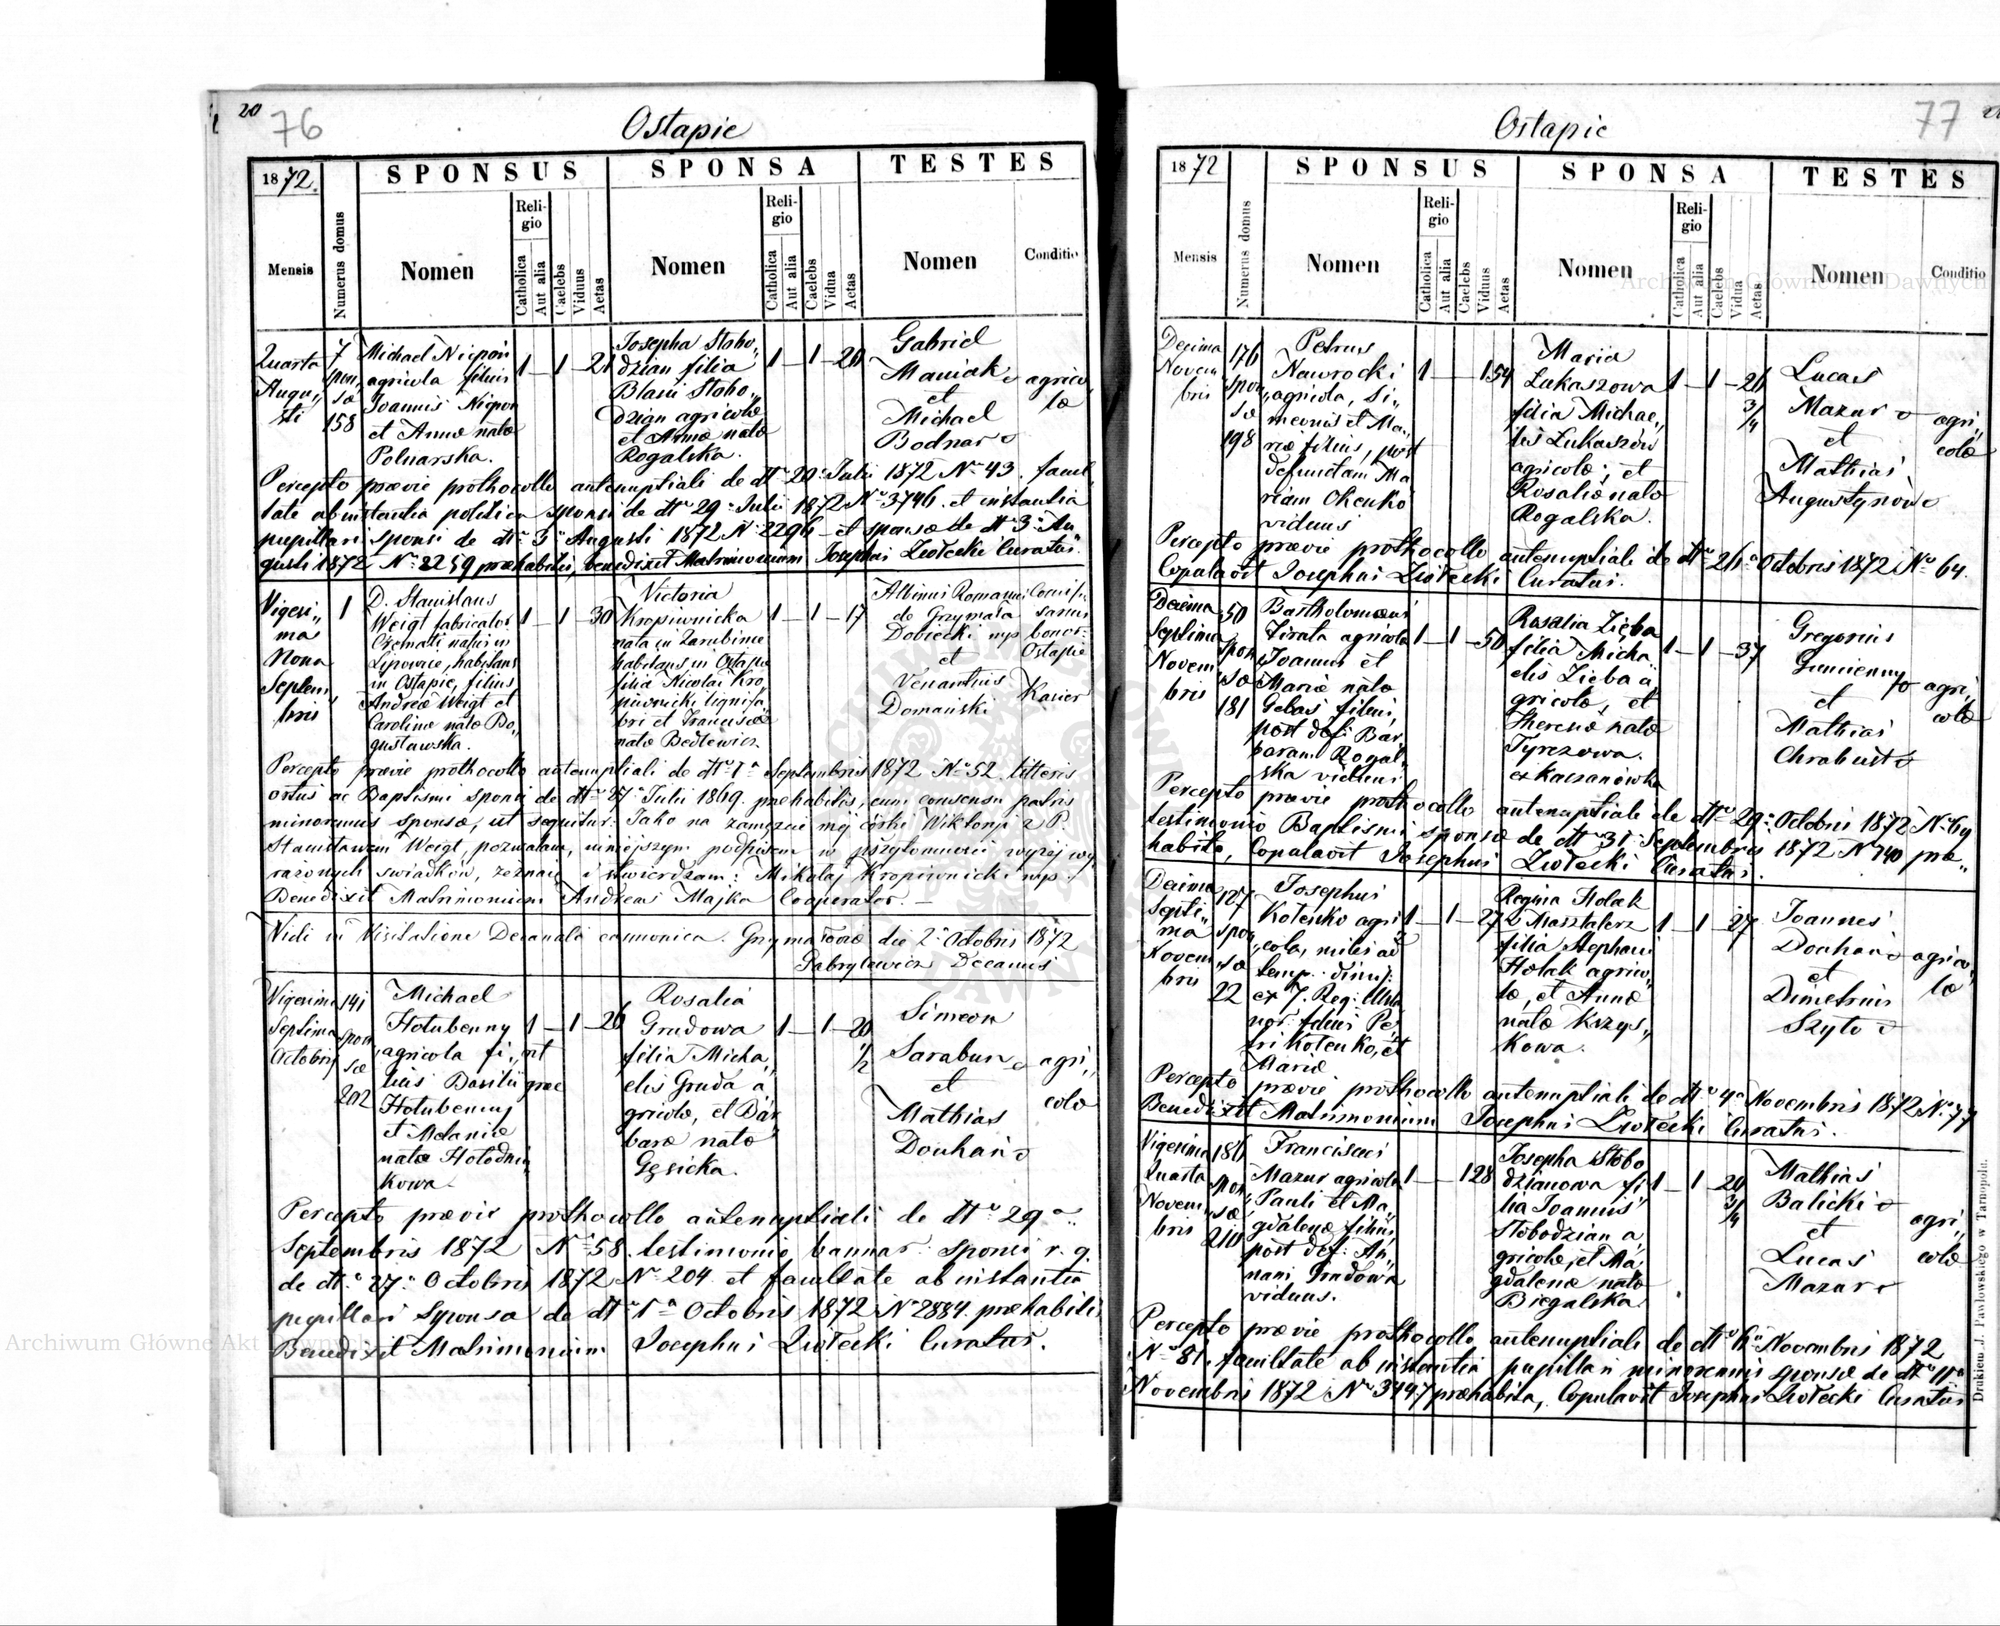 20
76
Ostapie
1872.
SPONSUS
SPONSA
TESTES
Mensis
Numerus domus
Nomen
Religio
Catholica
Aut alia
Caelebs
Viduus
Aetas
Nomen
Religio
Catholica
Aut alia
Caelebs
Vidua
Aetas
Nomen
Conditio
Quarta
Augu„
sti
7
spon„
sæ
158
Michael Nicpoń
agricola filius
Joannis Nicpoń
et Annæ natæ
Polnarska.
1 — 1 — 21
Josepha Słobo„
dzian filia
Blasii Słobo„
dzian agricolæ
et Annæ natæ
Rogalska.
1 — 1 — 20
Gabriel
Maniak
et
Michael
Bodnar
agrico„
læ
Percepto prævie prothocollo antenuptiali de dtto 20a Julii 1872 No 43. facul„
tate ab instantia politica sponsi de dtto 29a Julii 1872 No 3746. et instantia
pupillari sponsi de dtto 3a Augusti 1872 No 2296 et sponsæ de dtto 3a Au„
gusti 1872 No 2259 præhabitis, benedixit Matrimonium Josephus Ziółecki Curatus.
Vigesi„
ma
Nona
Septem„
bris
1
D. Stanislaus
Weigt fabricator
natus in
Lipowice, habitans
in Ostapie, filius
Andreæ Weigt et
Carolinæ natæ Bo„
gusławska.
1 — 1 — 30
Victoria
Kropiwnicka
nata in Zarubińce
habitans in Ostapie
filia Nicolai Kro„
piwnicki lignifa„
bri et Franciscæ
natæ Bedlewicz
1 — 1 — 17
Albinus Romanus
de Grzymała
Dobiecki mp
et
Venantius
Domański
Comis„
sarius
bonor:
Ostapie
Kasier
Percepto prævie prothocollo antenuptiali de dtto 1a Septembris 1872 No 52. litteris
ortus ac Baptismi sponsi de dtto 27 Julii 1869. præhabitis, cum consensu patris
minorennis sponsæ, ut sequitur: Jako na zamęzcie mej córki Wiktorji z P.
Stanisławem Weigt, pozwalam, niniejszym podpisem w przytomności wyżej wy„
rażonych swiadków, zeznaję i stwierdzam: Mikołaj Kropiwnicki mp.
Benedixit Matrimonium Andreas Majka Cooperator. —
Vidi in Visitatione Decanali canonica. Grzymałoviæ die 2a Octobris 1872
Gabrylewicz Decanus
Vigesima
Septima
Octobris
141
spon
sæ
202
Michael
Hołubenny
agricola fi„
lius Basilii
Hołubenny
et Melaniæ
natæ Hołodniu
kowa.
1 — 1 — 26
rit
græc
Rosalia
Grudowa
filia Micha„
elis Gruda a
gricolæ, et Bar
baræ natæ
Gęsicka.
1 — 1 — 20
1/2
Simeon
Sarabun
et
Mathias
Douhań
agri„
colæ
Percepto prævie prothocollo antenuptiali de dtto 29a
Septembris 1872 No 58. testimonio bannor. sponsi r. g.
de dtto 27a Octobris 1872 No 204. et facultate ab instantia
pupillari sponsa de dtto 1a Octobris 1872 No 2884. præhabitis
Benedixit Matrimonium Josephus Ziółecki Curatus.
77
Ostapie
1872
SPONSUS
SPONSA
TESTES
Mensis
Numerus domus
Nomen
Religio
Catholica
Aut alia
Caelebs
Viduus
Aetas
Nomen
Religio
Catholica
Aut alia
Caelebs
Vidua
Aetas
Nomen
Conditio
Decima
Novem
bris
176
spon
sæ
198
Petrus
Nawrocki
agricola, Si„
meonis et Ma„
riæ filius, post
defunctam Ma
riam Okenko
viduus
1 — — 1 54
Maria
Łukaszowa
filia Michae„
lis Łukaszów
agricolæ; et
Rosaliæ nata
Rogalska.
1 — 1 — 21
3/4
Lucas
Mazur
et
Mathias
Augustynów
agri„
colæ
Percepto prævie prothocollo antenuptiali de dtto 26a Octobris 1872 No 64.
Copulavit Josephus Ziółecki Curatus.
Decima
Septima
Novem
bris
50
spon
sæ
181
Bartholomæus
Firata agricola
Joannis et
Mariæ natæ
Gebas filius,
post def: Bar
baram Rogal„
ska viduus
1 — 1 — 50
Rosalia Zięba
filia Micha„
elis Zięba a
gricolæ, et
Theresiæ natæ
Tyrczowa.
ex Kaczanówka
1 — 1 — 37
Gregorius
Gumienny
et
Mathias
Chrabust
agri„
colæ
Percepto prævie prothocollo antenuptiali de dtto 29a Octobris 1872 No 69
testimonio Baptismi sponsæ de dtto 31 Septembris 1872 No 740 præ„
habito, Copulavit Josephus Ziółecki Curatus.
Decima
Septi„
ma
Novem
bris
127
spon
sæ
22
Josephus
Kotenko agri
cola, miles ad
temp. dimis:
ex 7. Reg:
nor: filius Pe
tri Kotenko, et
Mariæ
1 — 1 — 27
Regina Holak
2 Masztalerz
filia Stephani
Holak agrico„
læ, et Annæ
natæ Krzys„
kowa.
1 — 1 — 27
Joannes
Douhań
et
Dimetrius
Szyto
agrico„
læ
Percepto prævie prothocollo antenuptiali de dtto 4a Novembris 1872 No 77
Benedixit Matrimonium Josephus Ziółecki Curatus.
Vigesima
Quarta
Novem
bris
186
spon
sæ
210
Franciscus
Mazur agricola
Pauli et Ma„
gdalenæ filius
post def: An„
nam Grudowa
viduus.
1 — — 1 28
Josepha Słobo
dzianowa fi„
lia Joannis
Słobodzian a„
gricolæ, et Ma„
gdalenæ natæ
Biegalska.
1 — 1 — 20
3/4
Mathias
Balicki
et
Lucas
Mazur
agri„
colæ
Percepto prævie prothocollo antenuptiali de dtto 6a Novembris 1872
No 81. facultate ab instantia pupillari minorennis sponsæ de dtto 11a
Novembris 1872 No 3147 præhabita, Copulavit Josephus Ziółecki Curatus
Drukiem J. Pawłowskiego w Tarnopolu.
Archiwum Główne Akt Dawnych
Archiwum Główne Akt Dawnych